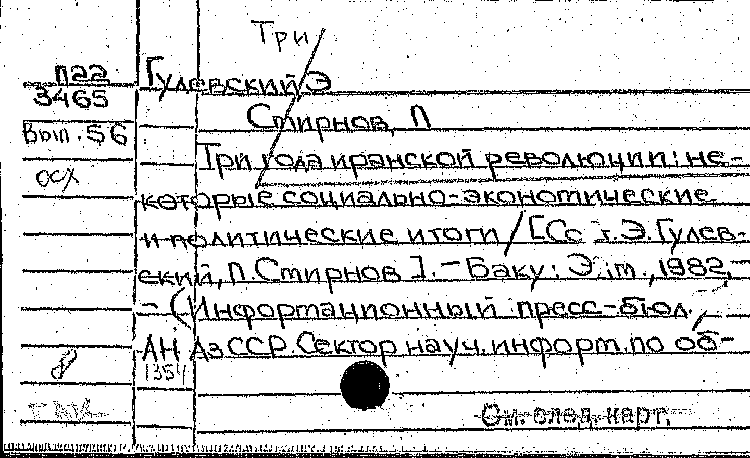 Три
п22 Гулевский, Э
3465
Смирнов, П
Вып. 56
Три года иранской революции: не-
осх
которые социально-экономические
и политические итоги / [Сост. Э. Гулев-
ский, П. Смирнов]. - Баку: Элм, 1982, -
- (Информационный пресс-бюл. /
АН АзССР. Сектор науч. информ. по об-
1354
См. след. карт.